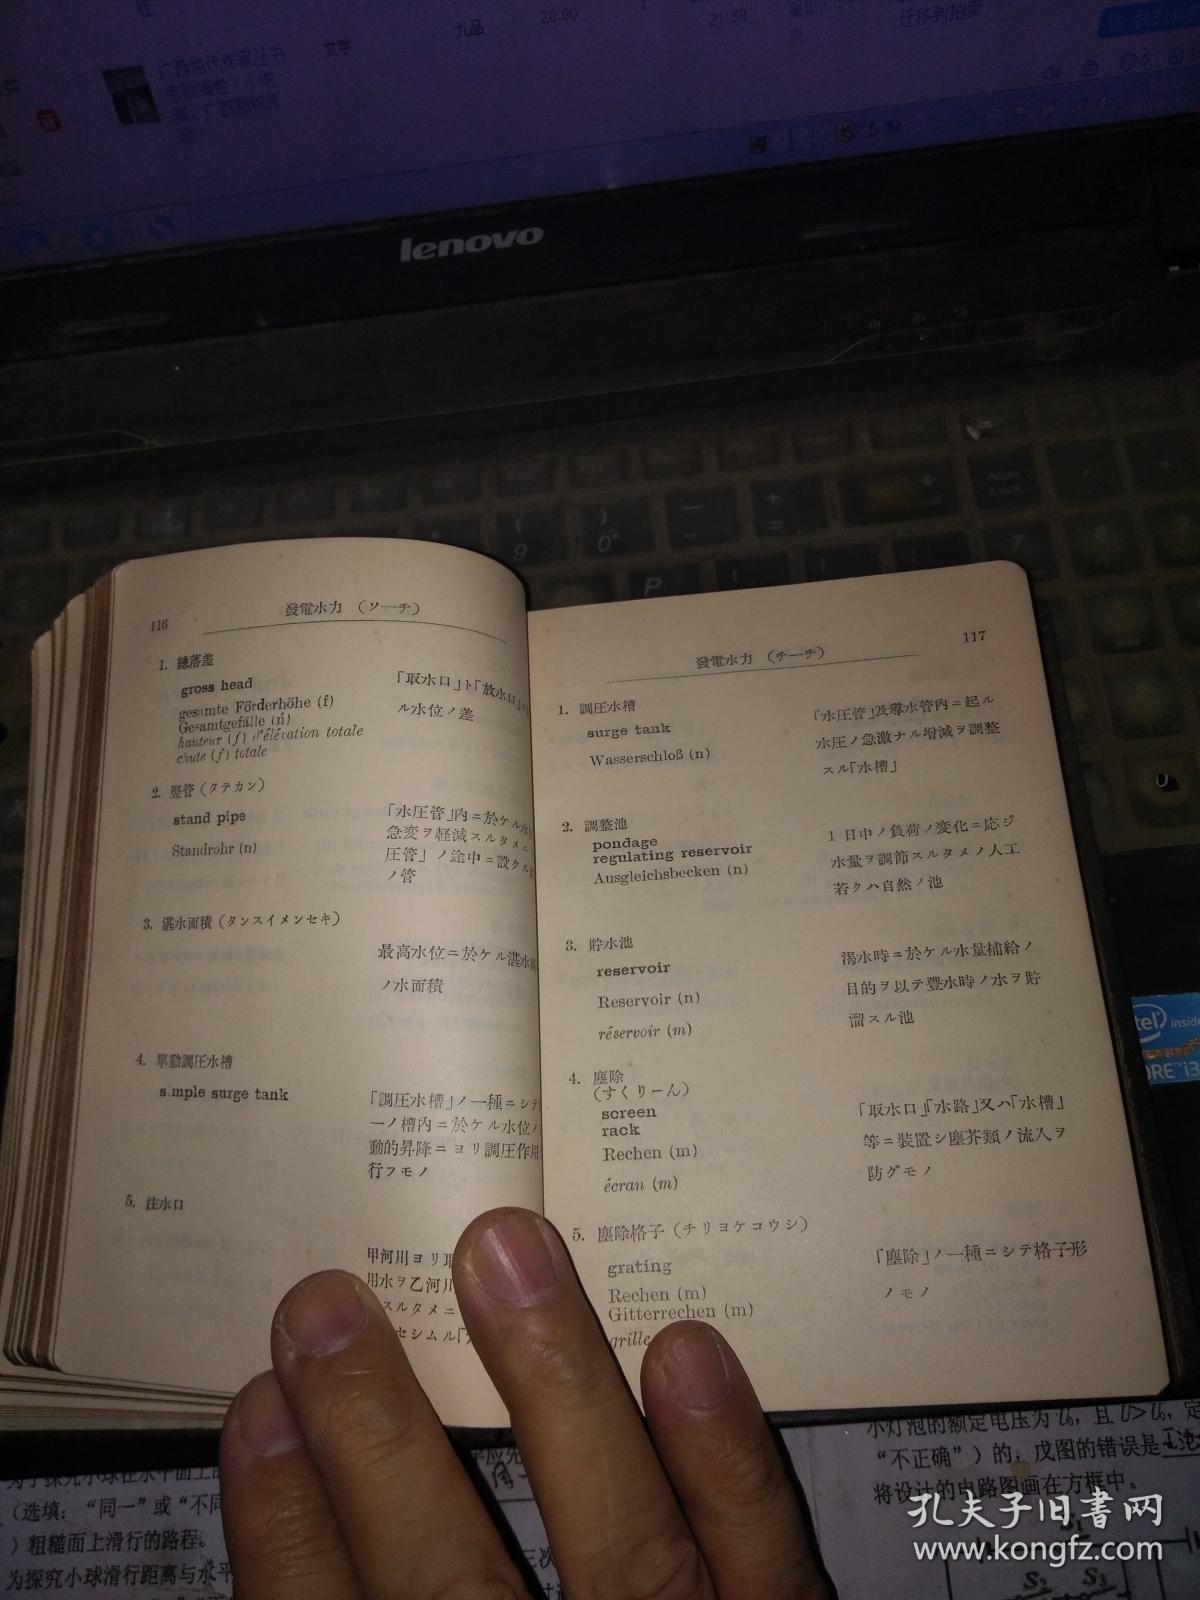 社
九品
20.00
21:58
迁移到拍卖
广西当代作家丛书
文学
lenovo
116
發電水力 (ソ—チ)
1. 總落差
gross head
「取水口」ト「放水口」
gesamte Förderhöhe (f)
Gesamtgefälle (n)
ル水位ノ差
hauteur (f) d'élévation totale
chute (f) totale
2. 竪管 (タテカン)
stand pipe
「水圧管」內ニ於ケル水
急変ヲ軽減スルタメニ
Standrohr (n)
圧管」ノ途中ニ設クル
ノ管
3. 湛水面積 (タンスイメンセキ)
最高水位ニ於ケル湛水
ノ水面積
4. 單動調圧水槽
simple surge tank
「調圧水槽」ノ一種ニシテ
一ノ槽內ニ於ケル水位ノ
動的昇降ニヨリ調圧作用
行フモノ
5. 注水口
甲河川ヨリ取
用水ヲ乙河川
スルタメニ
セシムル「
117
發電水力 (チ—チ)
1. 調圧水槽
surge tank
「水圧管」及導水管內ニ起ル
Wasserschloß (n)
水圧ノ急激ナル増減ヲ調整
スル「水槽」
2. 調整池
pondage
regulating reservoir
1 日中ノ負荷ノ変化ニ応ジ
Ausgleichsbecken (n)
水量ヲ調節スルタメノ人工
若クハ自然ノ池
3. 貯水池
reservoir
渇水時ニ於ケル水量補給ノ
Reservoir (n)
目的ヲ以テ豊水時ノ水ヲ貯
réservoir (m)
溜スル池
4. 塵除
(すくりーん)
screen
rack
「取水口」「水路」又ハ「水槽」
Rechen (m)
等ニ装置シ塵芥類ノ流入ヲ
écran (m)
防グモノ
5. 塵除格子 (チリヨケコウシ)
grating
「塵除」ノ一種ニシテ格子形
Rechen (m)
ノモノ
Gitterrechen (m)
grille
intel inside
CORE i3
小灯泡的额定电压为U₀，且U>U₀，定
“不正确”）的，戊图的错误是
将设计的电路图画在方框中。
为了探究小球在水平面上
（选填：“同一”或“不同
）粗糙面上滑行的路程。
为探究小球滑行距离与水平
三次
S₁
S₂
S₃
孔夫子旧书网
www.kongfz.com